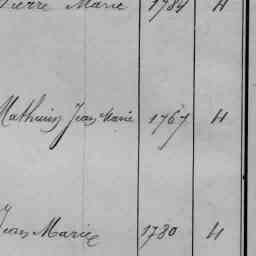 Pierre Marie 1784 H
Mathurin Jean Marie 1767 H
Jean Marie 1780 H